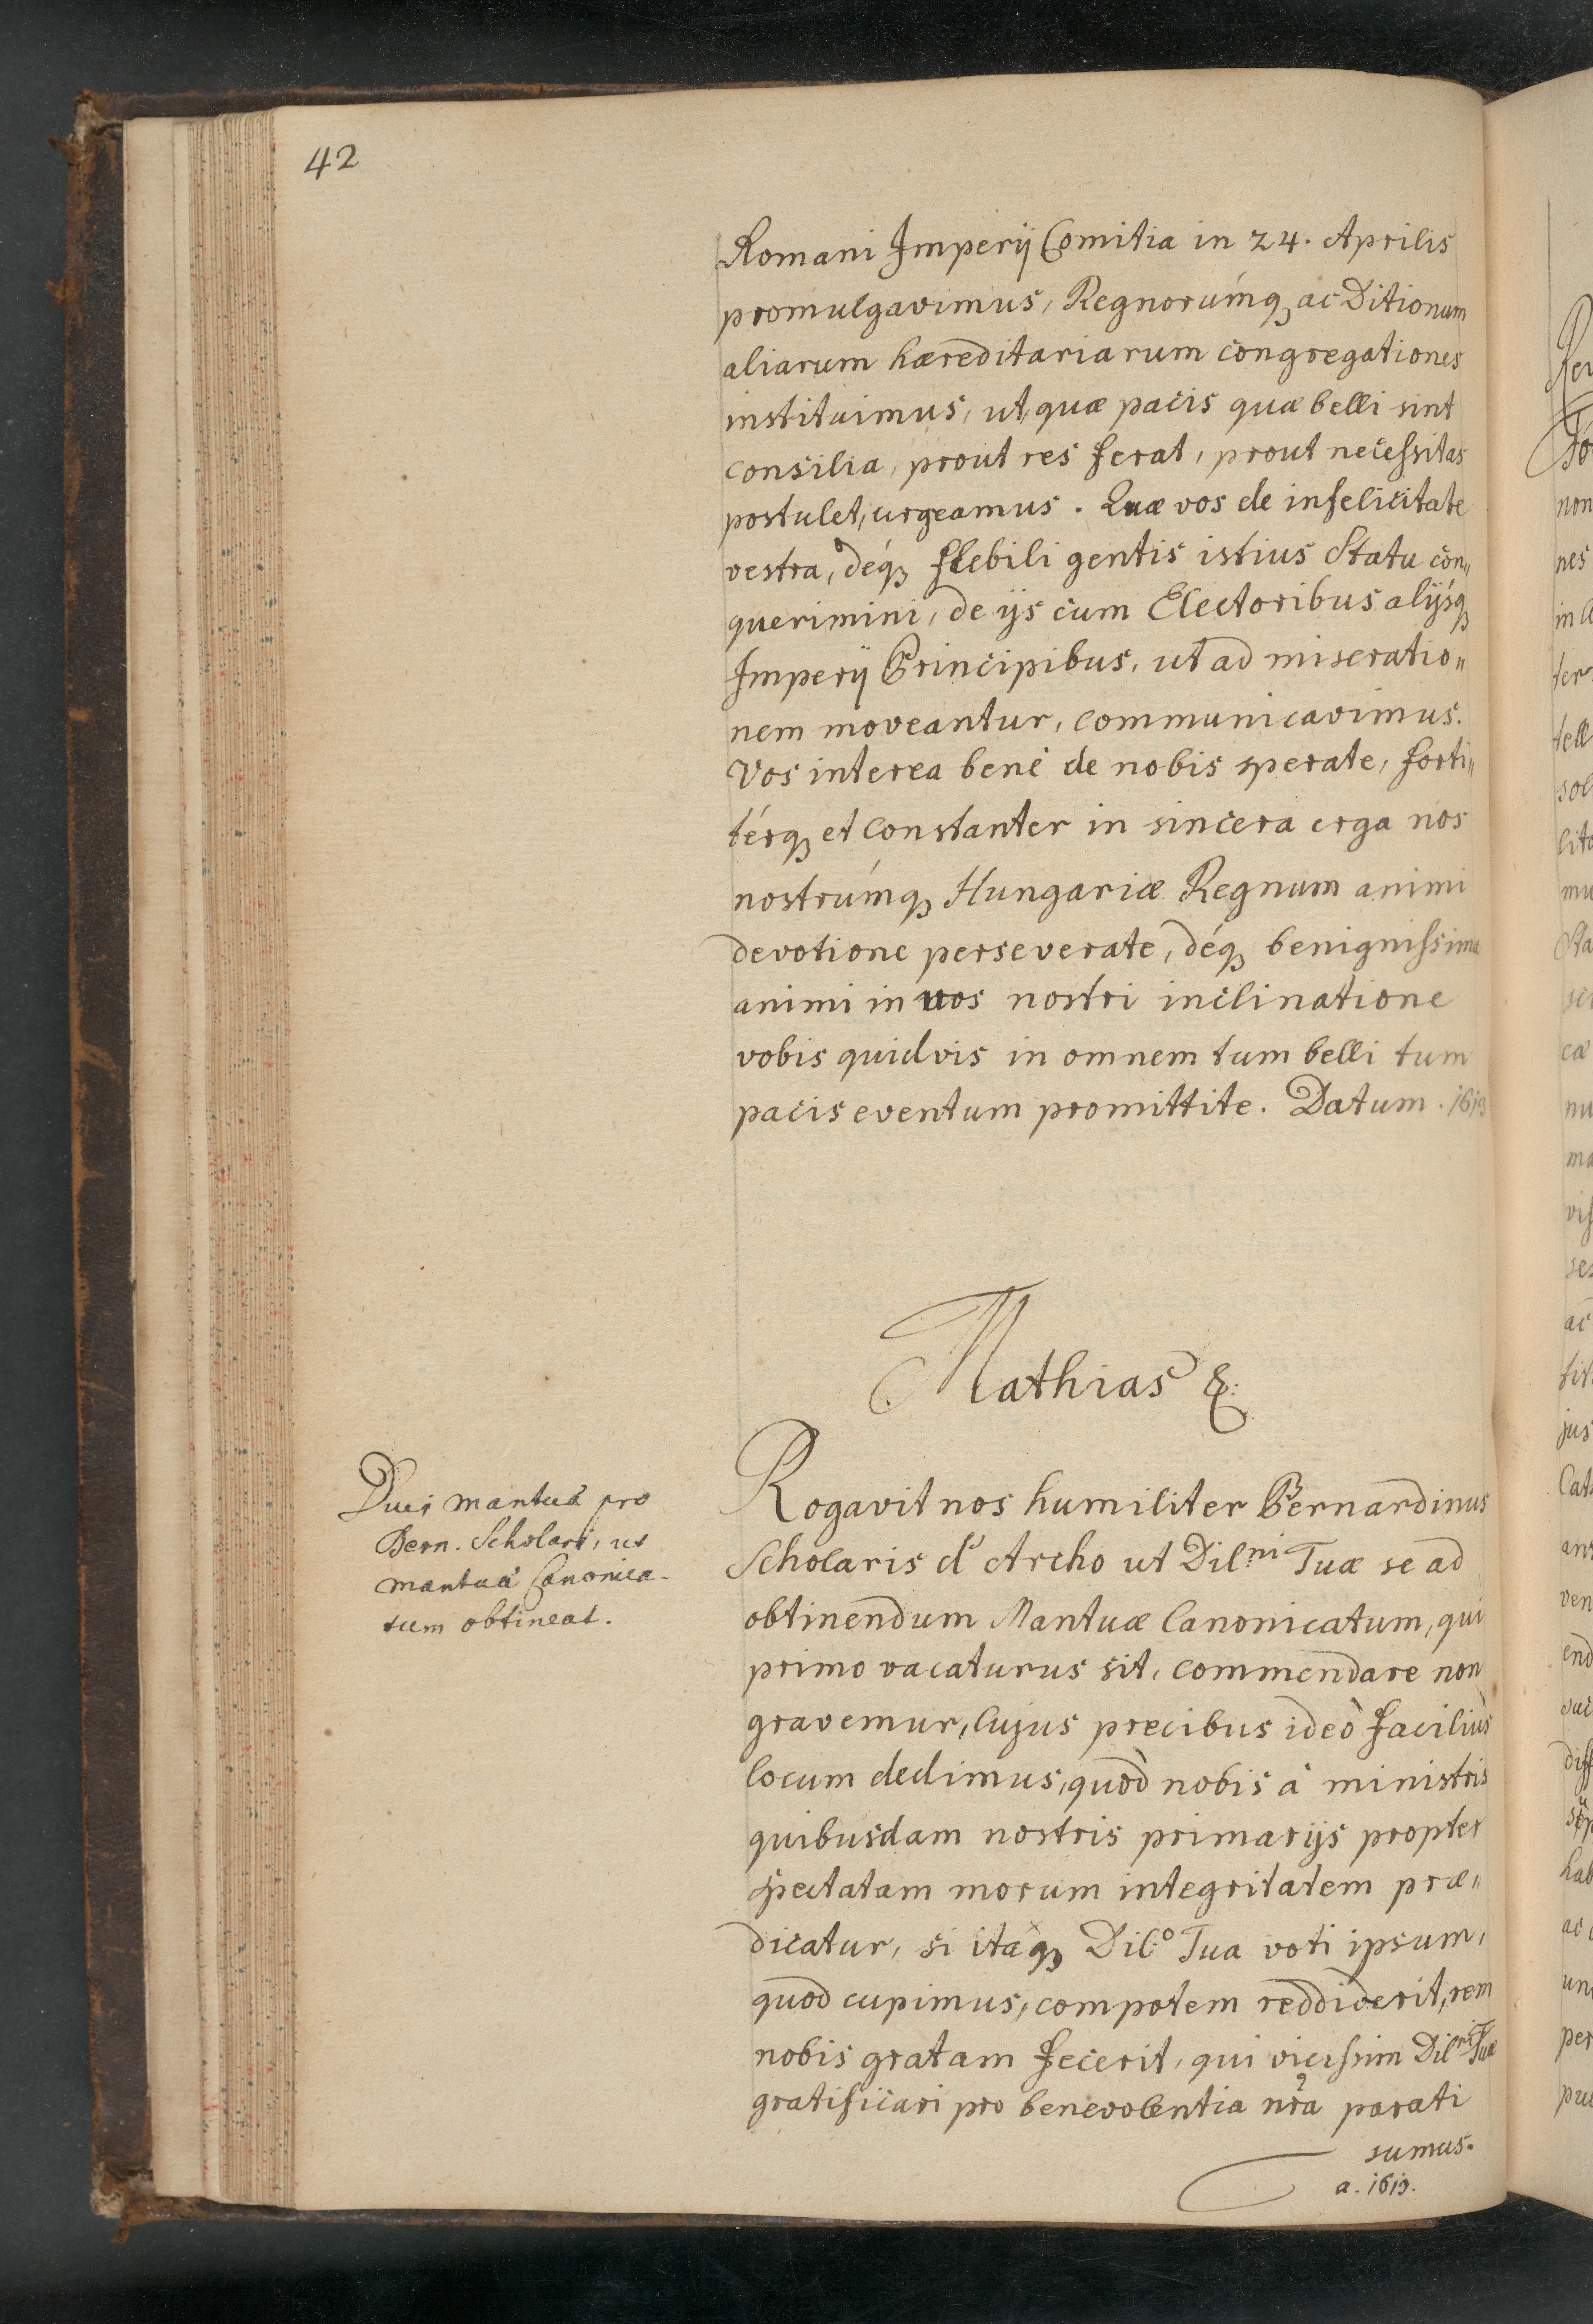 42
Romani Imperij Comitia in 24. Aprilis
promulgavimus, Regnorúmq₃ ac Ditionum
aliarum hæreditariarum congregationes
instituimus, ut, quæ pacis quæ belli sint
consilia, prout res ferat, prout necessitas
postulet, urgeamus. Quæ vos de infelicitate
vestra, déq₃ flebili gentis istius Statu con„
querimini, de ijs cum Electoribus alijsq₃
Imperij Principibus, ut ad miseratio„
nem moveantur, communicavimus.
Vos interea bene de nobis sperate, forti„
térq₃ et constanter in sincera erga nos
nostrúmq₃ Hungariæ Regnum animi
devotione perseverate, déq₃ benignissima
animi in vos nostri inclinatione
vobis quidvis in omnem tum belli tum
pacis eventum promittite. Datum. 1613
Mathias &:
Duci Mantuæ pro
Bern. Scholari, ut
Mantuæ Canonica-
tum obtineat.
Rogavit nos humiliter Bernardinus
Scholaris d' Archo ut Dil:ni Tuæ se ad
obtinendum Mantuæ Canonicatum, qui
primo vacaturus sit, commendare non
gravemur, Cujus precibus ideò faciliùs
locum dedimus, quòd nobis à ministris
quibusdam nostris primarijs propter
spectatam morum integritatem præ„
dicatur, si itaq₃ Dil:o Tua voti ipsum,
quod cupimus, compotem reddiderit, rem
nobis gratam fecerit, qui vicissim Dil:ni Tuæ
gratificari pro benevolentia nra parati
sumus.
a. 1613.